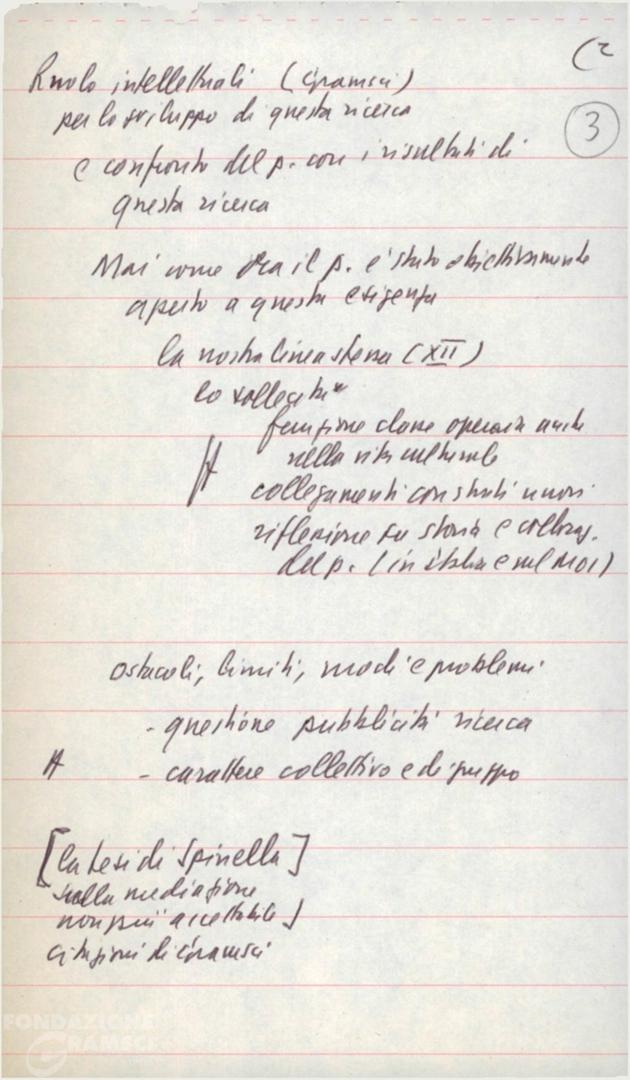 (2
3
Ruolo intellettuali (Gramsci)
per lo sviluppo di questa ricerca
e confronto del p. con i risultati di
questa ricerca
Mai come ora il p. è stato obiettivamente
aperto a questa esigenza
la nostra linea stessa (XII)
lo sollecita
funzione classe operaia anche
nella vita culturale
collegamenti con strati nuovi
riflessione su storia e collocaz.
del p. (in Italia e nel MOI)
ostacoli, limiti, modi e problemi
- questione pubblicità ricerca
- carattere collettivo e di gruppo
[la tesi di Spinella]
sulla mediazione
non più accettabile]
citazioni di Gramsci
FONDAZIONE
GRAMSCI